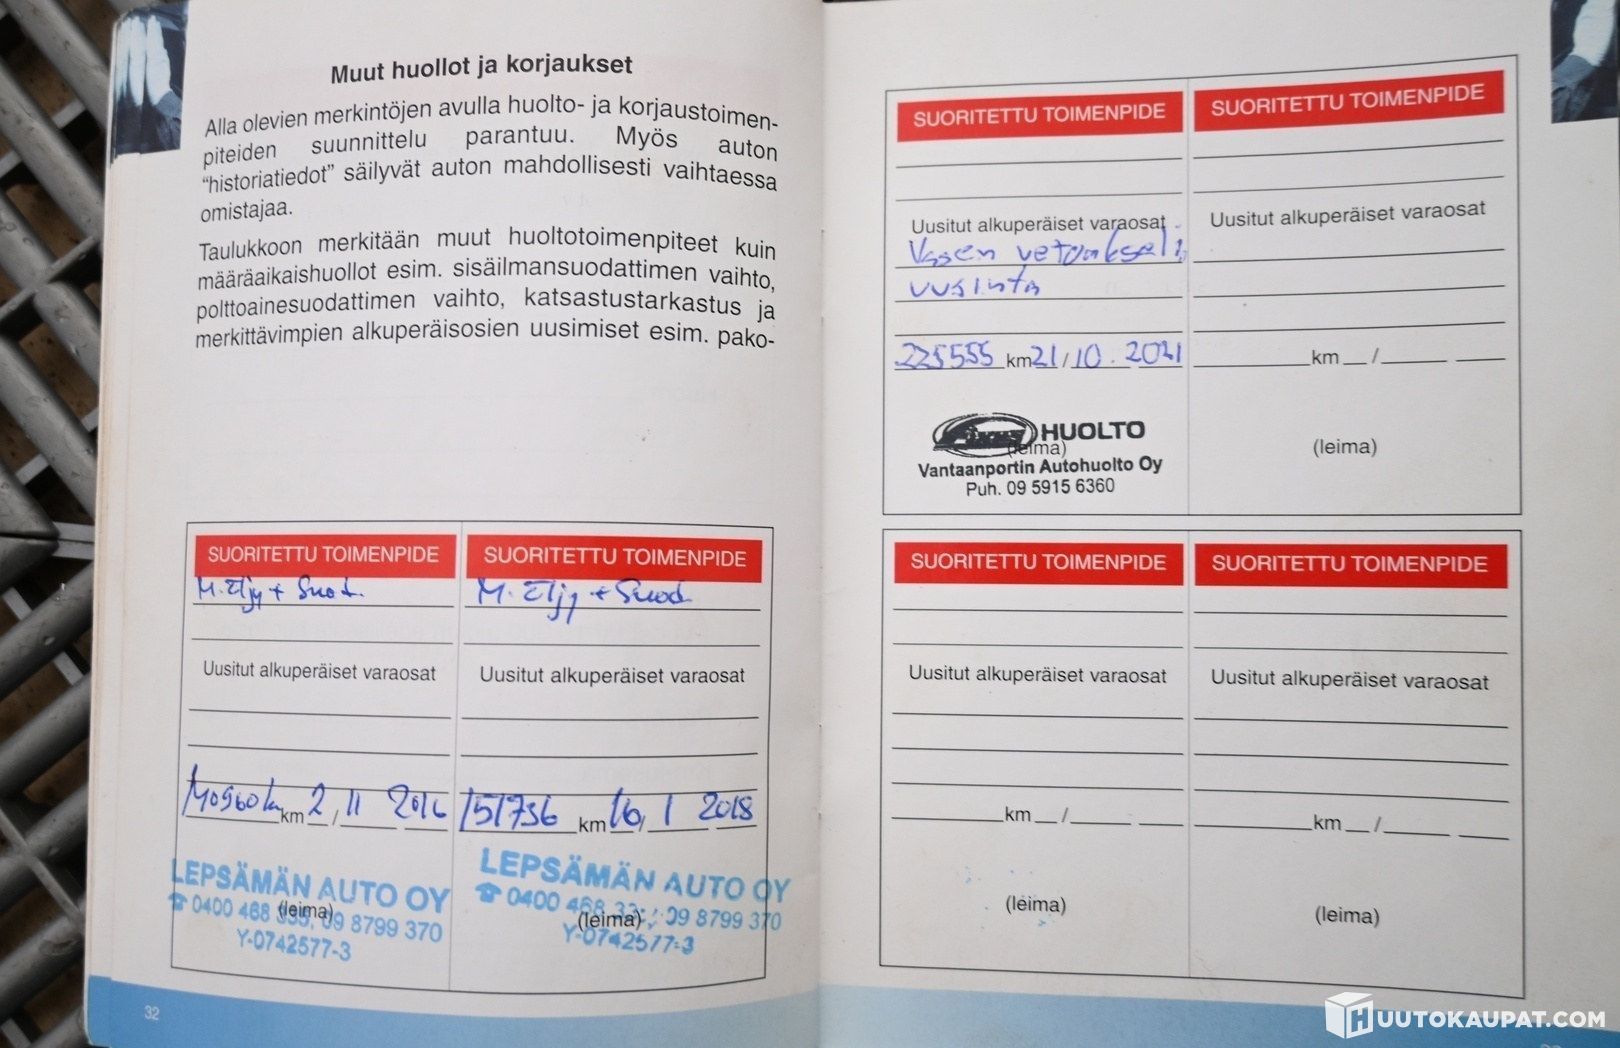 Muut huollot ja korjaukset
Alla olevien merkintöjen avulla huolto- ja korjaustoimen-
piteiden suunnittelu parantuu. Myös auton
“historiatiedot” säilyvät auton mahdollisesti vaihtaessa
omistajaa.
Taulukkoon merkitään muut huoltotoimenpiteet kuin
määräaikaishuollot esim. sisäilmansuodattimen vaihto,
polttoainesuodattimen vaihto, katsastustarkastus ja
merkittävimpien alkuperäisosien uusimiset esim. pako-
SUORITETTU TOIMENPIDE
M. Öljy + Suod.
Uusitut alkuperäiset varaosat
km 2 / 11 2016
LEPSÄMÄN AUTO OY
(leima)
☎ 0400 468 335, 09 8799 370
Y-0742577-3
SUORITETTU TOIMENPIDE
M. Öljy + Suod.
Uusitut alkuperäiset varaosat
151736 km 16 / 1 2018
LEPSÄMÄN AUTO OY
(leima)
☎ 0400 468 09 8799 370
Y-0742577-3
32
SUORITETTU TOIMENPIDE
Uusitut alkuperäiset varaosat
Vasen vetoakseli
uusinta
225555 km 21 / 10. 2021
HUOLTO
(leima)
Vantaanportin Autohuolto Oy
Puh. 09 5915 6360
SUORITETTU TOIMENPIDE
Uusitut alkuperäiset varaosat
km /
(leima)
SUORITETTU TOIMENPIDE
Uusitut alkuperäiset varaosat
km /
(leima)
SUORITETTU TOIMENPIDE
Uusitut alkuperäiset varaosat
km /
(leima)
HUUTOKAUPAT.COM